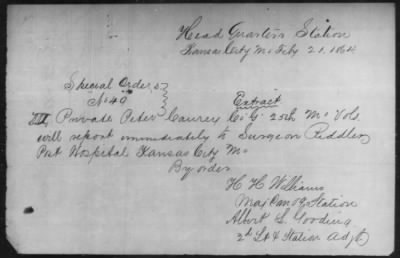 Head Quarters Station
Kansas City Mo Feby 21. 1864
Special Orders
No 40
Extract
III Private Peter Co. G. 25th Mo Vols
will report immediately to Surgeon
Post Hospital Kansas City Mo
By order
H H Williams
Maj Station
Albert S. Gooding
2d Lt & Station Adjt